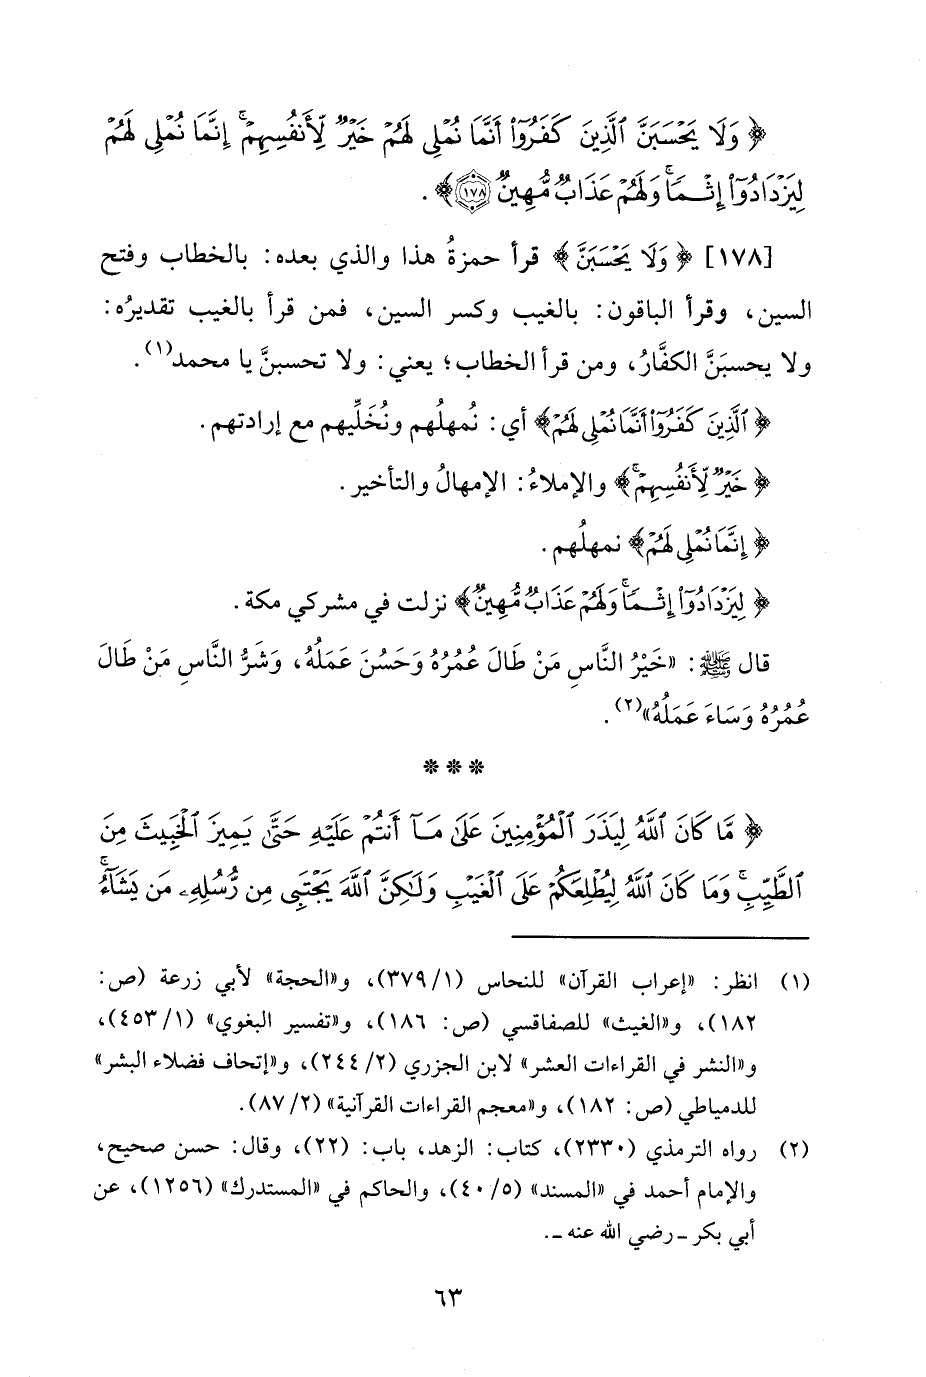 ﴿ وَلَا يَحْسَبَنَّ ٱلَّذِينَ كَفَرُوٓا۟ أَنَّمَا نُمْلِى لَهُمْ خَيْرٌ لِّأَنفُسِهِمْ ۚ إِنَّمَا نُمْلِى لَهُمْ
لِيَزْدَادُوٓا۟ إِثْمًا ۚ وَلَهُمْ عَذَابٌ مُّهِينٌ ١٧٨ ﴾ .
[١٧٨] ﴿ وَلَا يَحْسَبَنَّ ﴾ قرأ حمزةُ هذا والذي بعده: بالخطاب وفتح
السين، وقرأ الباقون: بالغيب وكسر السين، فمن قرأ بالغيب تقديرُه:
ولا يحسبَنَّ الكفَّارُ، ومن قرأ الخطاب؛ يعني: ولا تحسبنَّ يا محمد(١).
﴿ ٱلَّذِينَ كَفَرُوٓا۟ أَنَّمَا نُمْلِى لَهُمْ ﴾ أي: نُمهلُهم ونُخَلِّيهم مع إرادتهم.
﴿ خَيْرٌ لِّأَنفُسِهِمْ ۚ ﴾ والإملاءُ: الإمهالُ والتأخير.
﴿ إِنَّمَا نُمْلِى لَهُمْ ﴾ نمهلُهم.
﴿ لِيَزْدَادُوٓا۟ إِثْمًا ۚ وَلَهُمْ عَذَابٌ مُّهِينٌ ﴾ نزلت في مشركي مكة.
قال ﷺ: «خَيْرُ النَّاسِ مَنْ طَالَ عُمُرُهُ وَحَسُنَ عَمَلُهُ، وَشَرُّ النَّاسِ مَنْ طَالَ
عُمُرُهُ وَسَاءَ عَمَلُهُ»(٢).
* * *
﴿ مَّا كَانَ ٱللَّهُ لِيَذَرَ ٱلْمُؤْمِنِينَ عَلَىٰ مَآ أَنتُمْ عَلَيْهِ حَتَّىٰ يَمِيزَ ٱلْخَبِيثَ مِنَ
ٱلطَّيِّبِ ۗ وَمَا كَانَ ٱللَّهُ لِيُطْلِعَكُمْ عَلَى ٱلْغَيْبِ وَلَـٰكِنَّ ٱللَّهَ يَجْتَبِى مِن رُّسُلِهِۦ مَن يَشَآءُ ۖ
(١) انظر: «إعراب القرآن» للنحاس (١/ ٣٧٩)، و«الحجة» لأبي زرعة (ص:
١٨٢)، و«الغيث» للصفاقسي (ص: ١٨٦)، و«تفسير البغوي» (١/ ٤٥٣)،
و«النشر في القراءات العشر» لابن الجزري (٢/ ٢٤٤)، و«إتحاف فضلاء البشر»
للدمياطي (ص: ١٨٢)، و«معجم القراءات القرآنية» (٢/ ٨٧).
(٢) رواه الترمذي (٢٣٣٠)، كتاب: الزهد، باب: (٢٢)، وقال: حسن صحيح،
والإمام أحمد في «المسند» (٥/ ٤٠)، والحاكم في «المستدرك» (١٢٥٦)، عن
أبي بكر ـ رضي الله عنه ـ.
٦٣